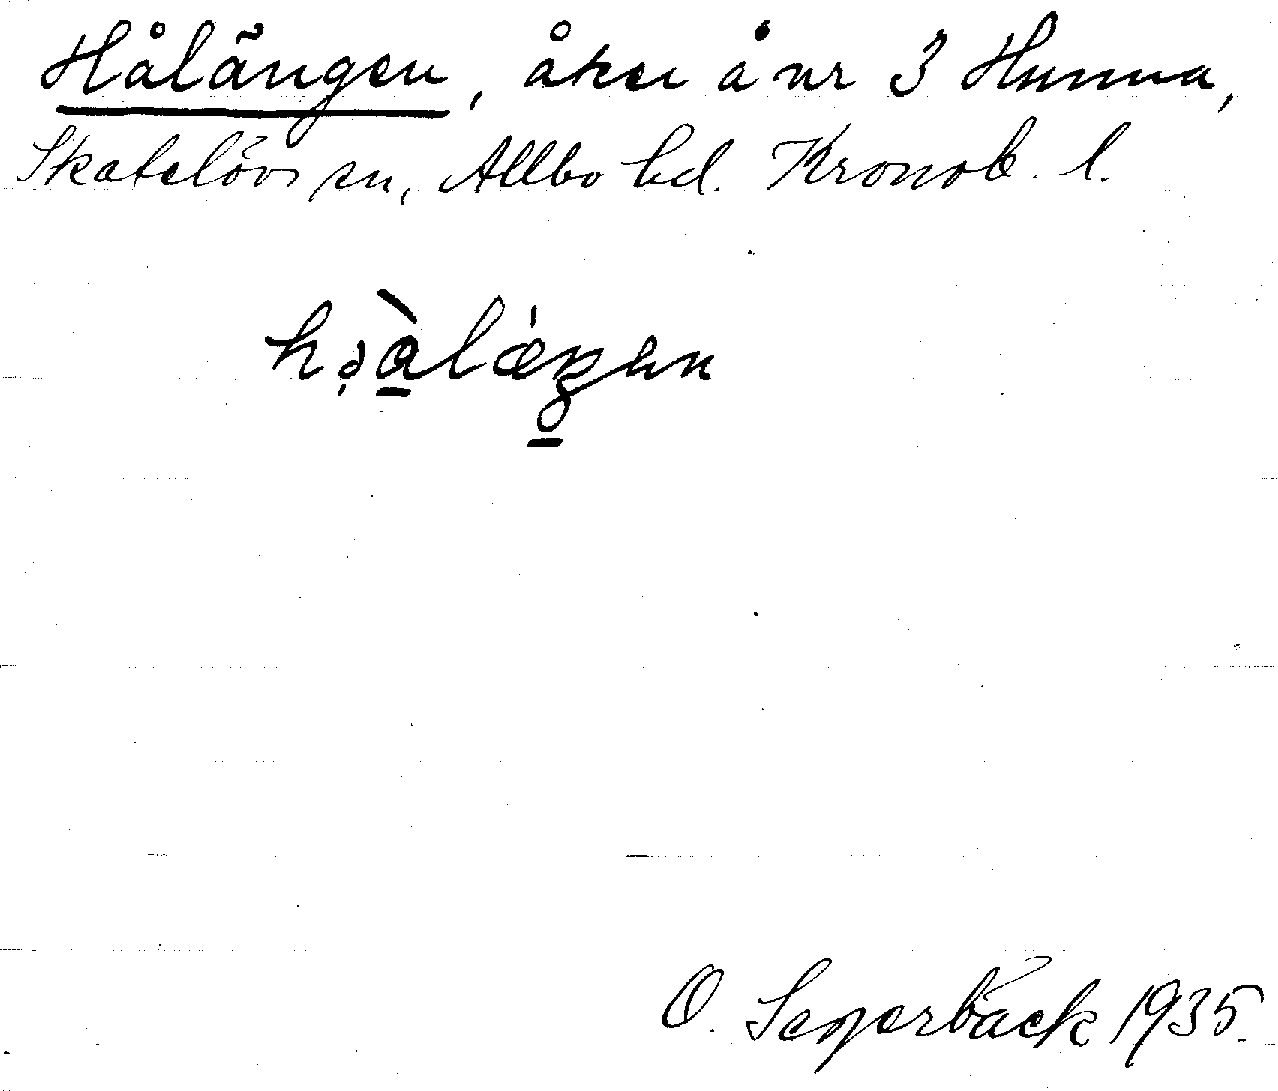 Hålängen, åker å nr 3 Hunna,
Skatelövs sn, Allbo hd. Kronob. l.
O. Segerbäck 1935.